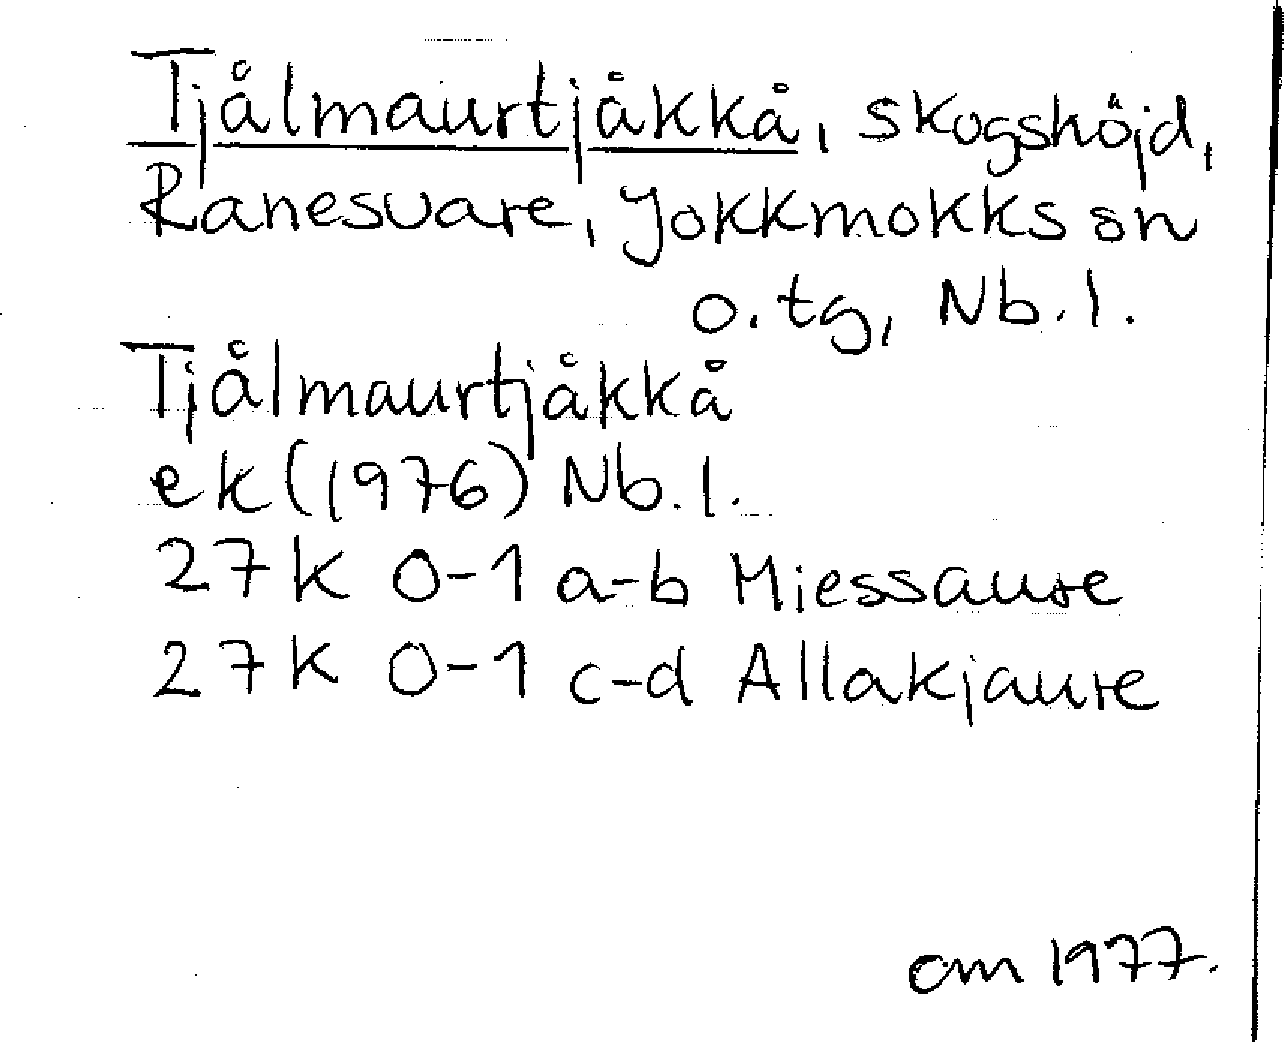 Tjålmaurtjåkkå, skogshöjd,
Ranesvare, Jokkmokks sn
o. tg, Nb. l.
Tjålmaurtjåkkå
ek (1976) Nb. l.
27 K 0-1 a-b Miessaure
27 K 0-1 c-d Allakjaure
om 1977.